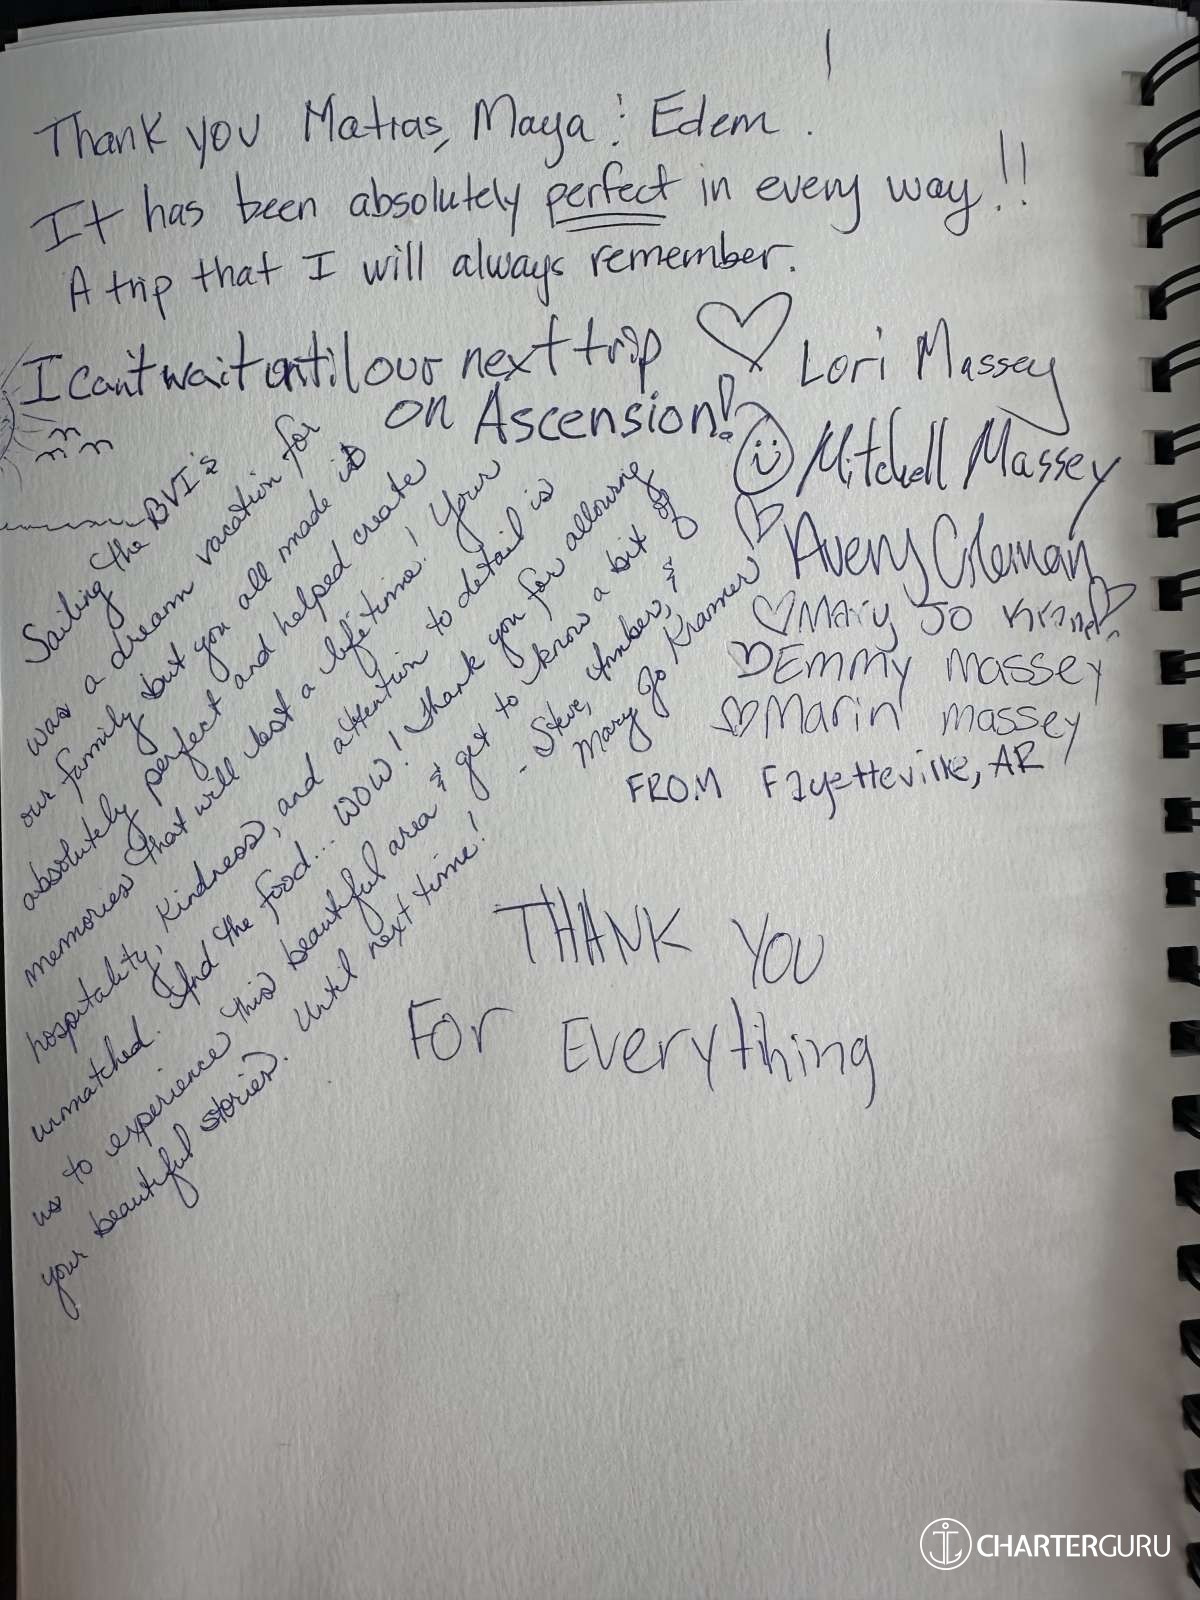 Thank you Matias, Maya & Edem!
It has been absolutely perfect in every way!!
A trip that I will always remember.
I can't wait until our next trip
on Ascension!
Lori Massey
Mitchell Massey
Avery Coleman
Mary Jo Kramer
Emmy Massey
Marin Massey
FROM Fayetteville, AR
Sailing the BVI's
was a dream vacation for
our family but you all made it
absolutely perfect and helped create
memories that will last a lifetime! Your
hospitality, kindness, and attention to detail is
unmatched. And the food... WOW! Thank you for allowing
us to experience this beautiful area & get to know a bit of
your beautiful stories. Until next time!
- Steve, Amber, &
Mary Jo Kramer
THANK YOU
For Everything
CHARTERGURU